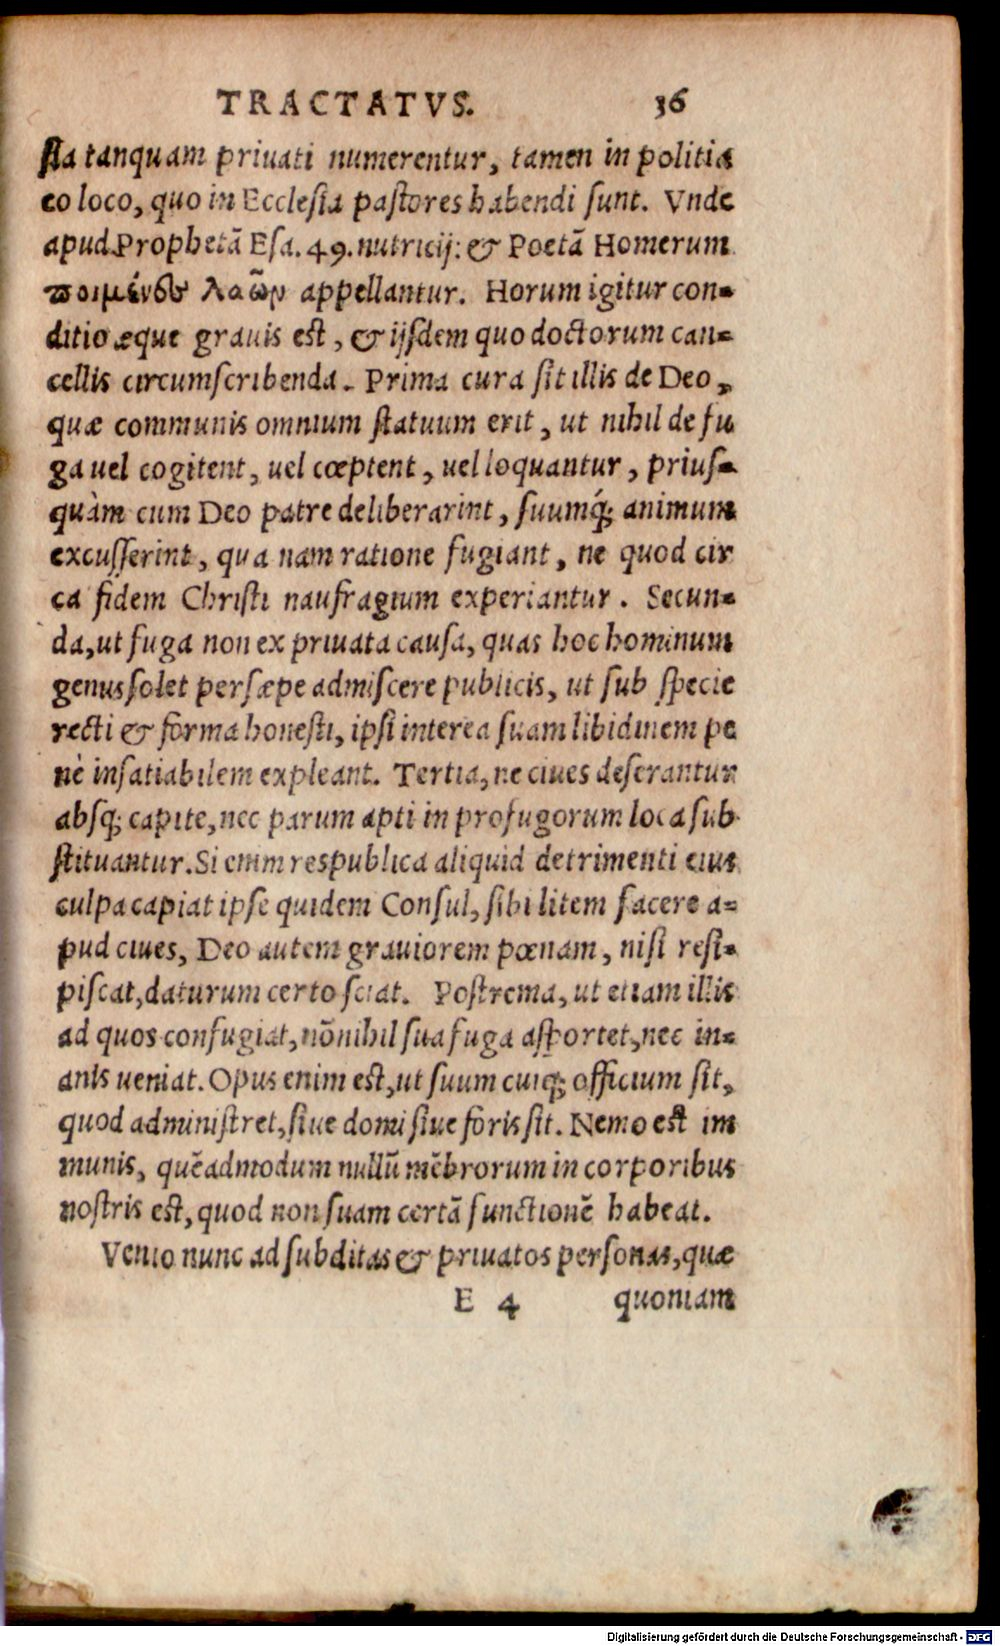 TRACTATVS. 36
sta tanquam priuati numerentur, tamen in politia
eo loco, quo in Ecclesia pastores habendi sunt. Vnde
apud Prophetā Esa. 49. nutricij: & Poetā Homerum
ποιμένες λαῶν appellantur. Horum igitur con-
ditio æque grauis est, & ijsdem quo doctorum can-
cellis circumscribenda. Prima cura sit illis de Deo,
quæ communis omnium statuum erit, ut nihil de fu
ga uel cogitent, uel cœptent, uel loquantur, prius-
quàm cum Deo patre deliberarint, suumq́; animum
excusserint, qua nam ratione fugiant, ne quod cir
ca fidem Christi naufragium experiantur. Secun-
da, ut fuga non ex priuata causa, quas hoc hominum
genus solet persæpe admiscere publicis, ut sub specie
recti & forma honesti, ipsi interea suam libidinem pe
nè insatiabilem expleant. Tertia, ne ciues deserantur
absq; capite, nec parum apti in profugorum loca sub
stituantur. Si enim respublica aliquid detrimenti eius
culpa capiat ipse quidem Consul, sibi litem facere a-
pud ciues, Deo autem grauiorem pœnam, nisi resi-
piscat, daturum certo sciat. Postrema, ut etiam illis
ad quos confugiat, nōnihil sua fuga asportet, nec in-
anis ueniat. Opus enim est, ut suum cuiq; officium sit,
quod administret, siue domi siue foris sit. Nemo est im
munis, quēadmodum nullū mēbrorum in corporibus
nostris est, quod non suam certā functionē habeat.
Venio nunc ad subditas & priuatos personas, quæ
E 4 quoniam
Digitalisierung gefördert durch die Deutsche Forschungsgemeinschaft - DFG